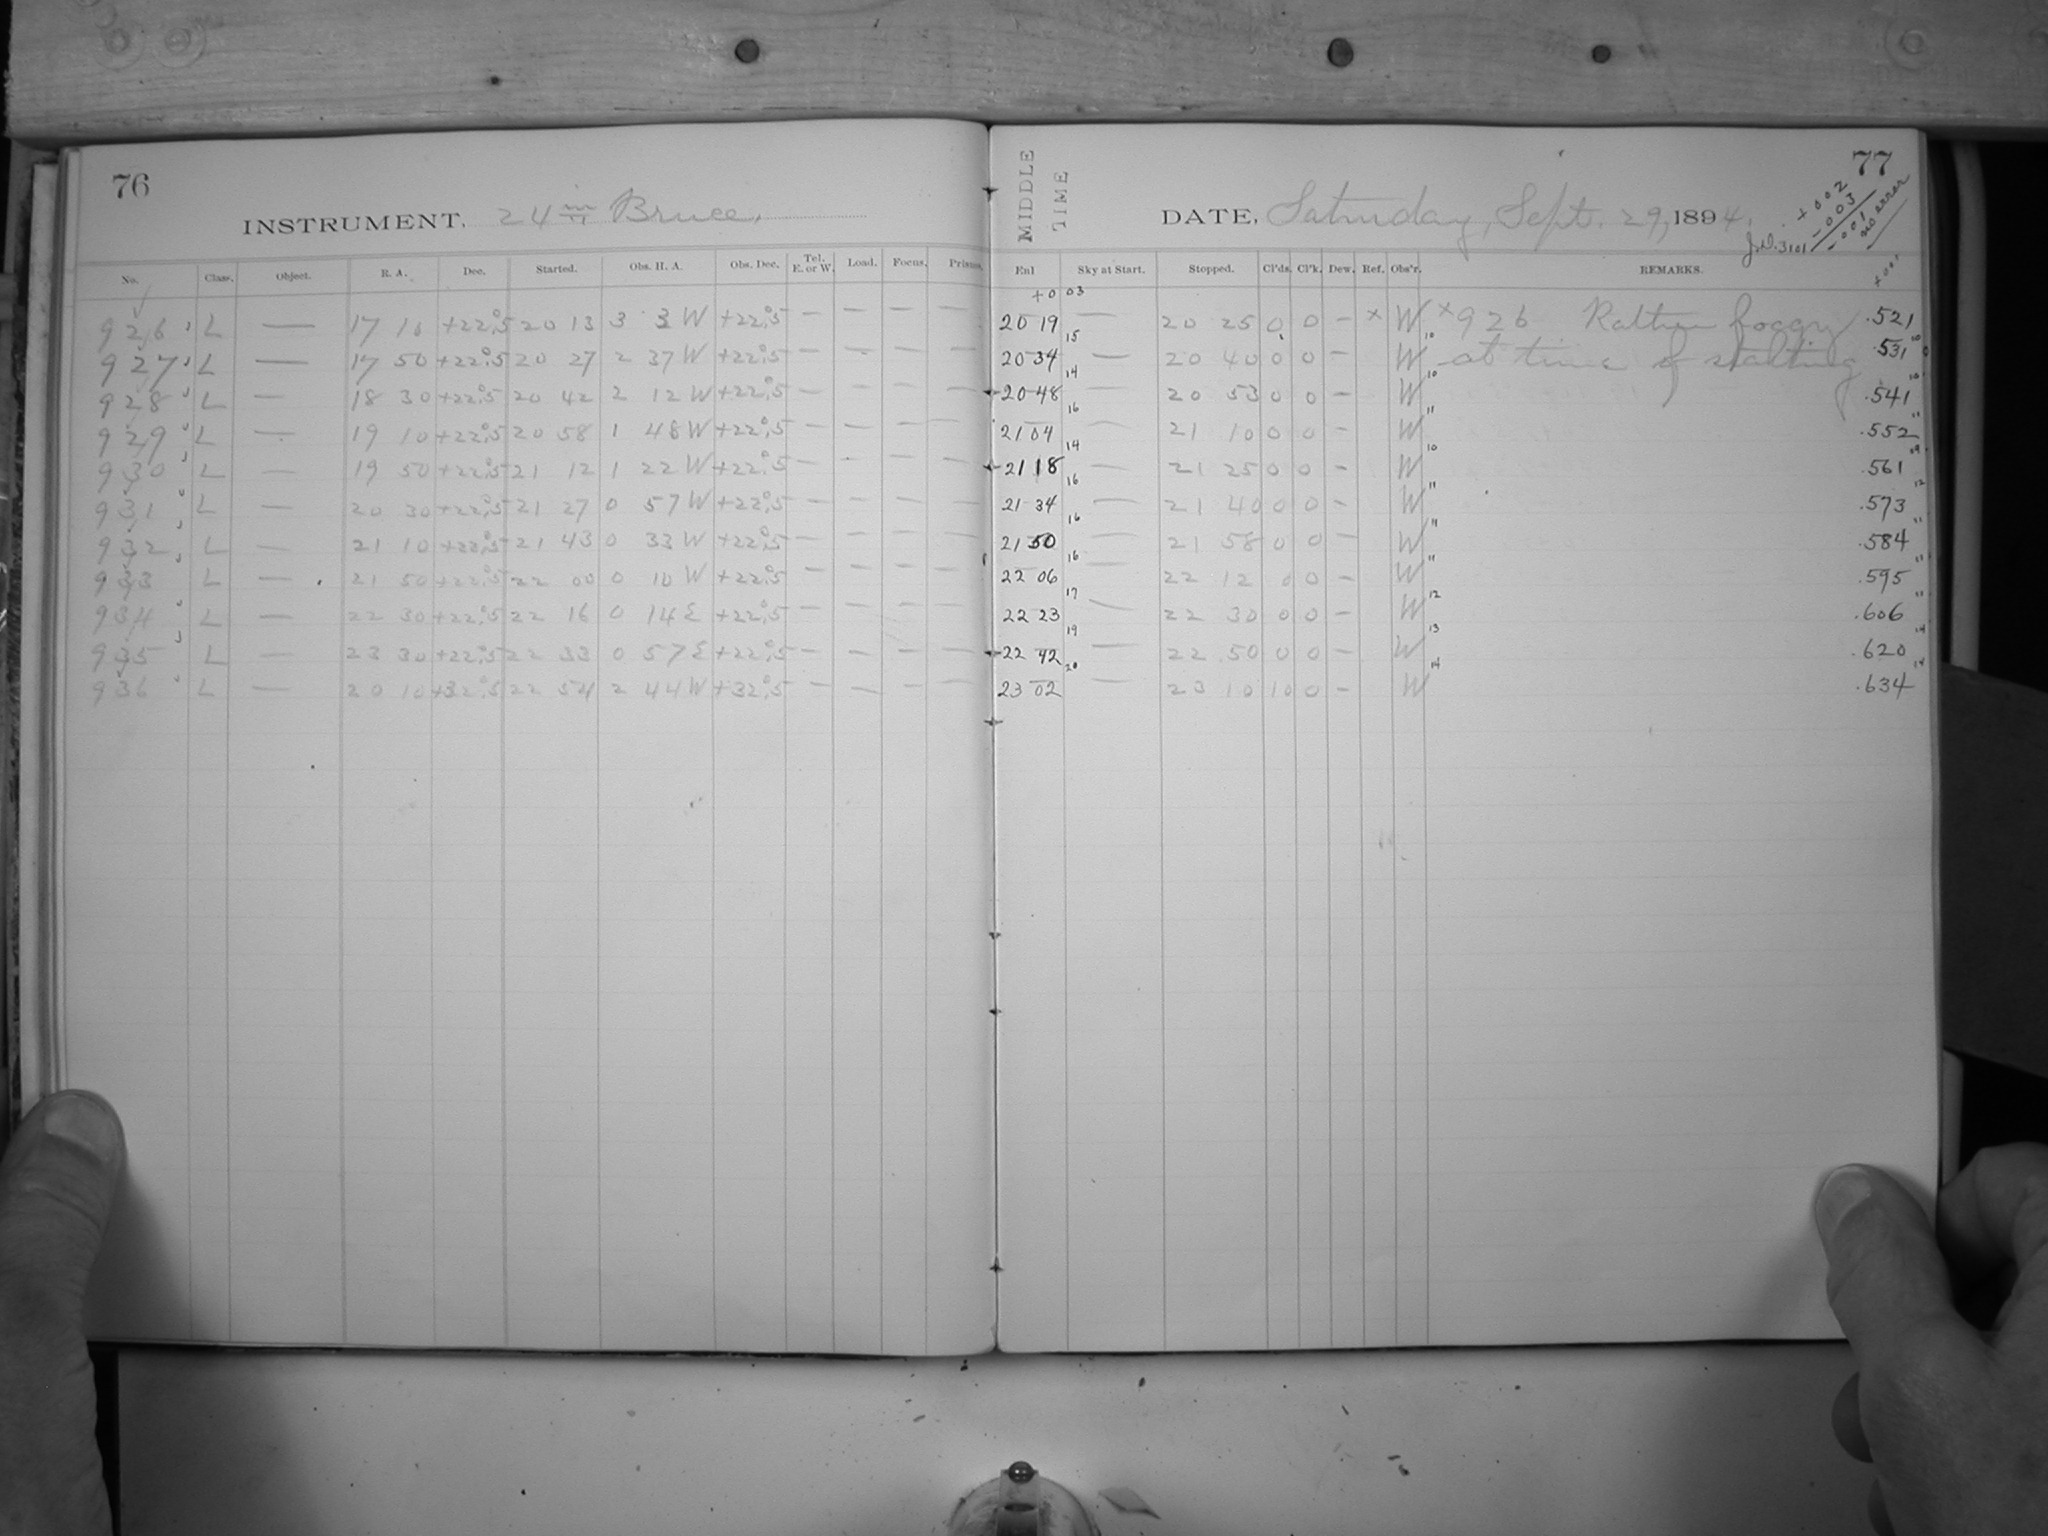 76
INSTRUMENT, 24 in Bruce.
No. Class. Object. R. A. Dec. Started. Obs. H. A. Obs. Dec. Tel. E. or W. Load. Focus. Prisms.
926 L — 17 10 +22°.5 20 13 3 3 W +22°.5 — — — —
927 L — 17 50 +22°.5 20 27 2 37 W +22°.5 — — — —
928 L — 18 30 +22°.5 20 42 2 12 W +22°.5 — — — —
929 L — 19 10 +22°.5 20 58 1 48 W +22°.5 — — — —
930 L — 19 50 +22°.5 21 12 1 22 W +22°.5 — — — —
931 L — 20 30 +22°.5 21 27 0 57 W +22°.5 — — — —
932 L — 21 10 +22°.5 21 43 0 33 W +22°.5 — — — —
933 L — 21 50 +22°.5 22 00 0 10 W +22°.5 — — — —
934 L — 22 30 +22°.5 22 16 0 14 E +22°.5 — — — —
935 L — 23 30 +22°.5 22 33 0 57 E +22°.5 — — — —
936 L — 20 10 +32°.5 22 54 2 44 W +32°.5 — — — —
77
MIDDLE TIME
DATE, Saturday, Sept. 29, 1894.
J.D. 3101
+002
-003
-001
no error
Exl Sky at Start. Stopped. Cl'ds. Cl'k. Dew. Ref. Obs'r. REMARKS.
+0 03 +001
20 19 — 20 25 0 0 — × W × 926 Rather foggy .521
15 10
20 34 — 20 40 0 0 — W at time of starting .531
14 10
20 48 — 20 53 0 0 — W .541
16 11
21 04 — 21 10 0 0 — W .552
14 10
21 18 — 21 25 0 0 — W .561
16 11
21 34 — 21 40 0 0 — W .573
16 11
21 50 — 21 58 0 0 — W .584
16 11
22 06 — 22 12 0 0 — W .595
17 12
22 23 — 22 30 0 0 — W .606
19 13
22 42 — 22 50 0 0 — W .620
20 14
23 02 — 23 10 10 0 — W .634